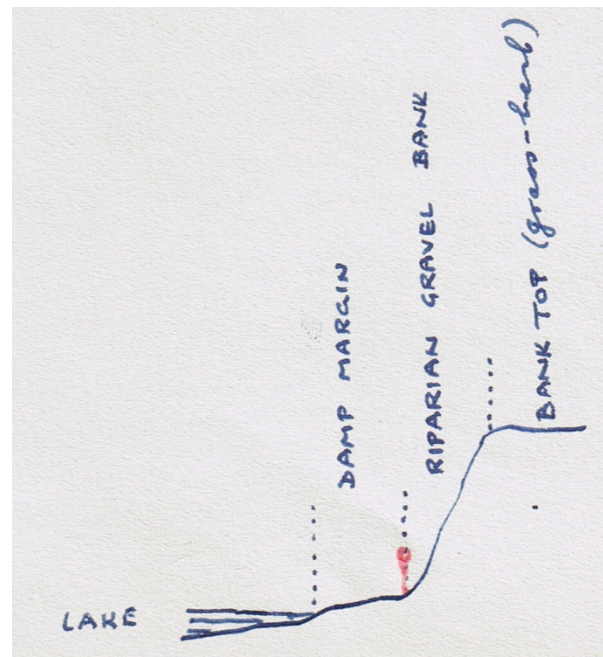 LAKE
DAMP MARGIN
RIPARIAN GRAVEL BANK
BANK TOP (grass-herb)